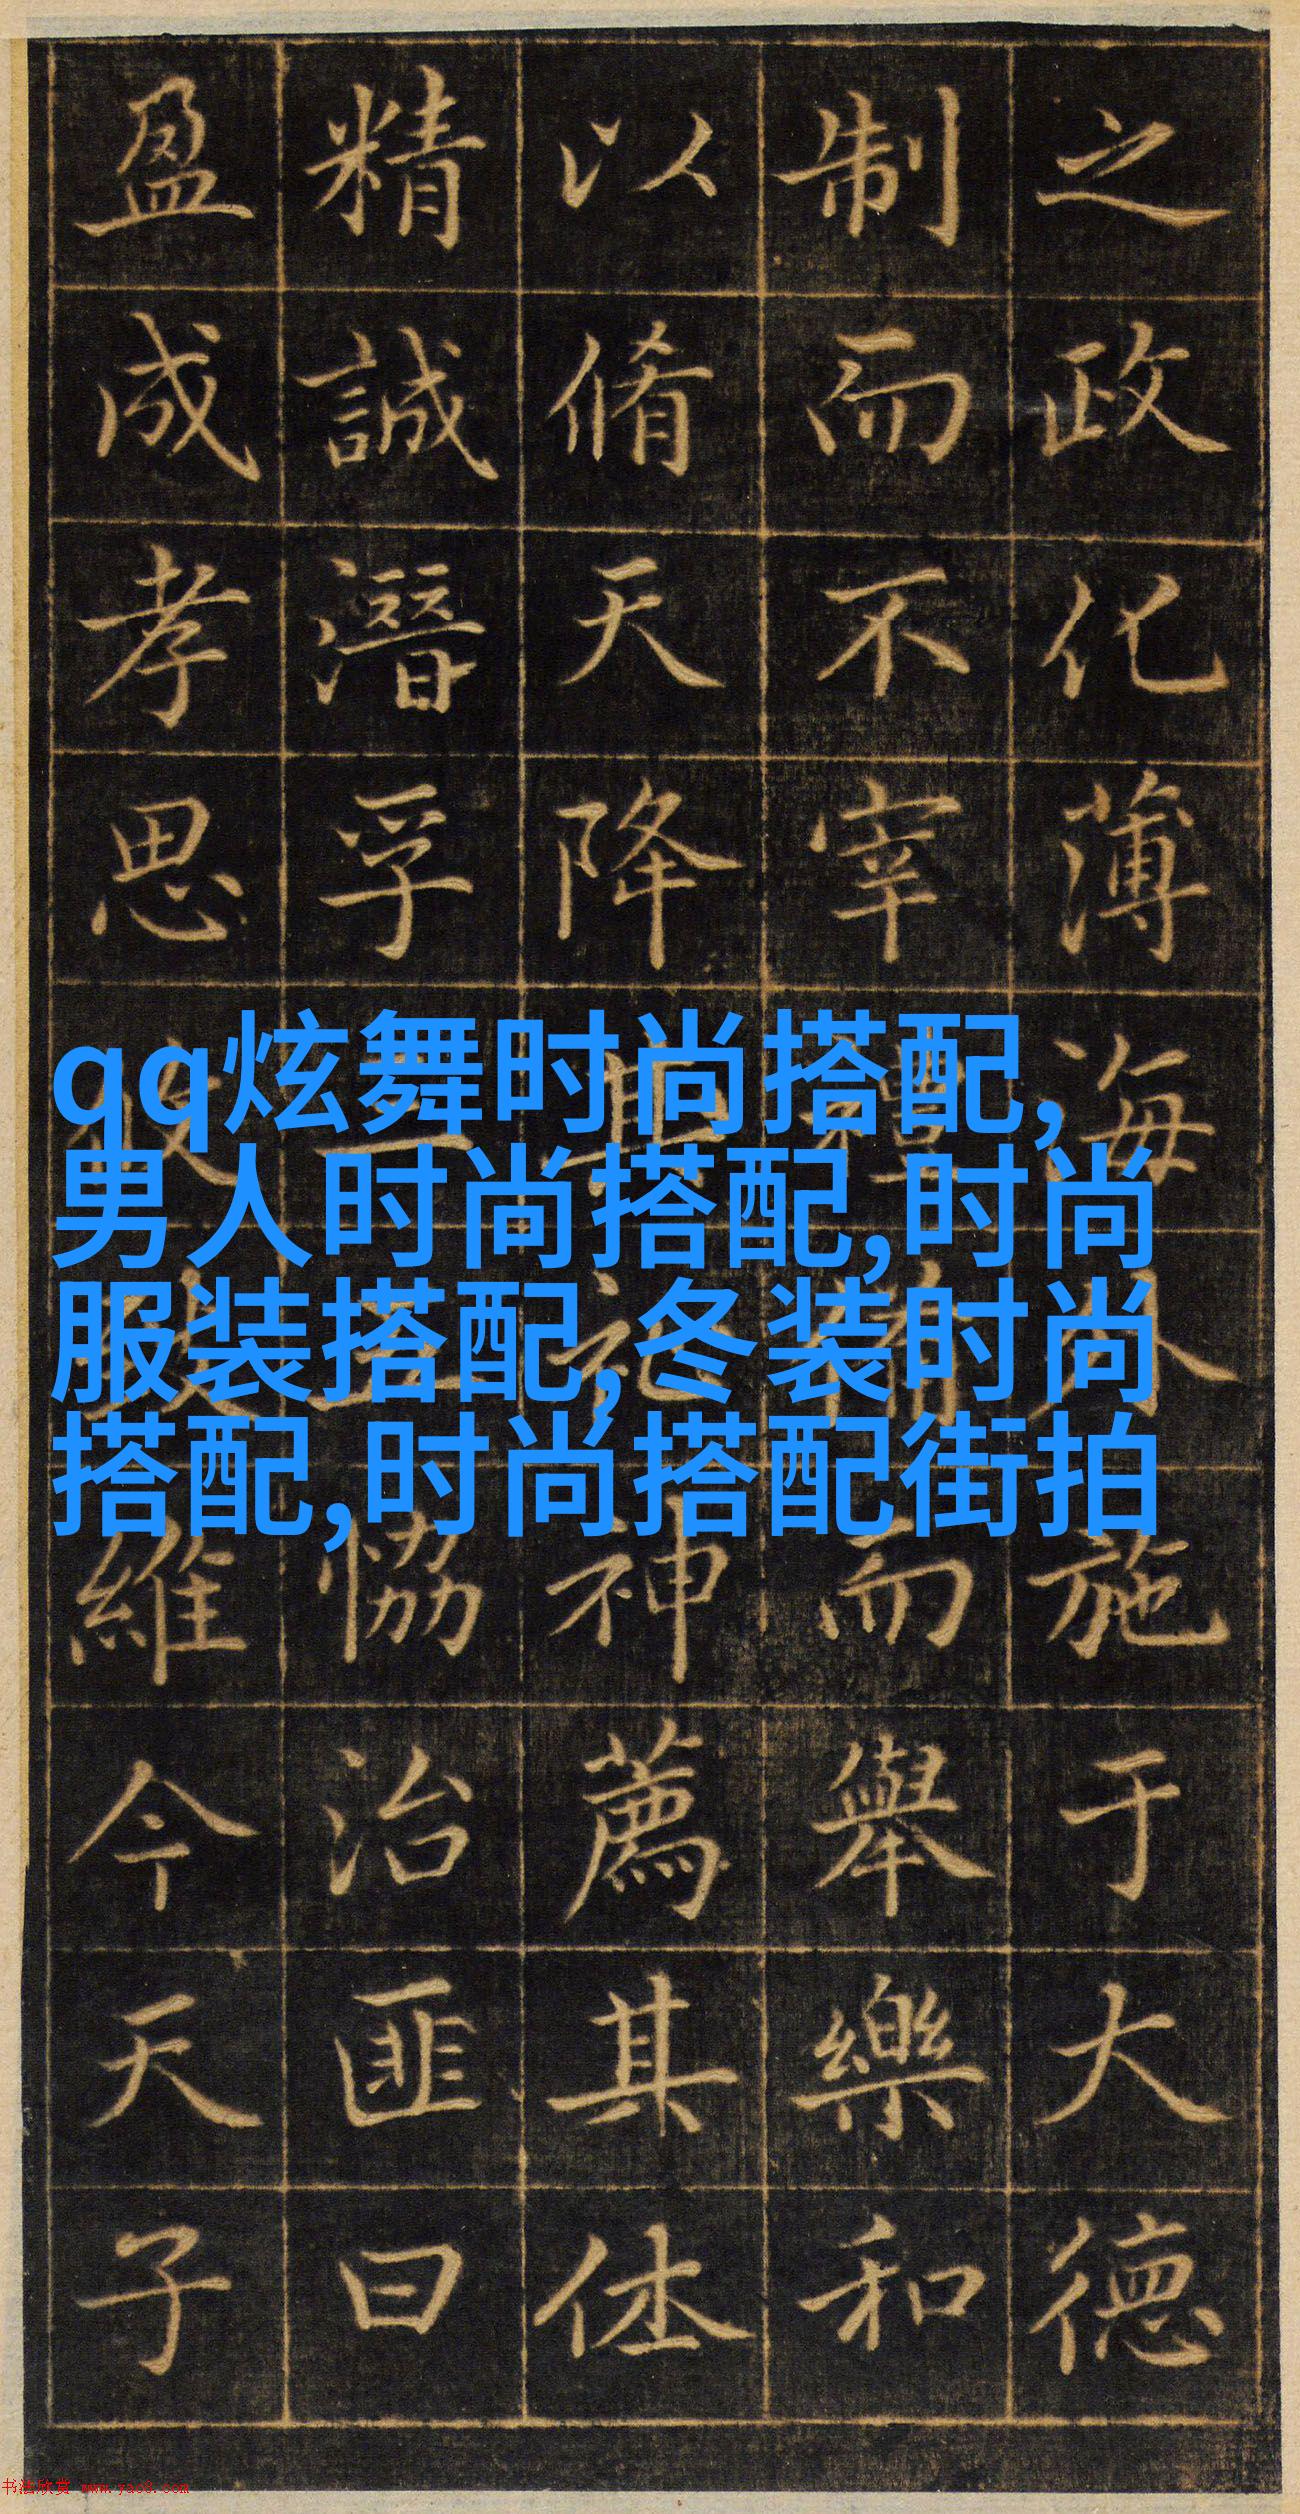 之政化薄海施于大德
制而不宰而舉樂和
以脩天降其神薦其休
精誠潛孚恊治匪曰
盈成孝思維今天子
qq炫舞时尚搭配,
男人时尚搭配,时尚
服装搭配,冬装时尚
搭配,时尚搭配街拍
书法欣赏 www.yac8.com